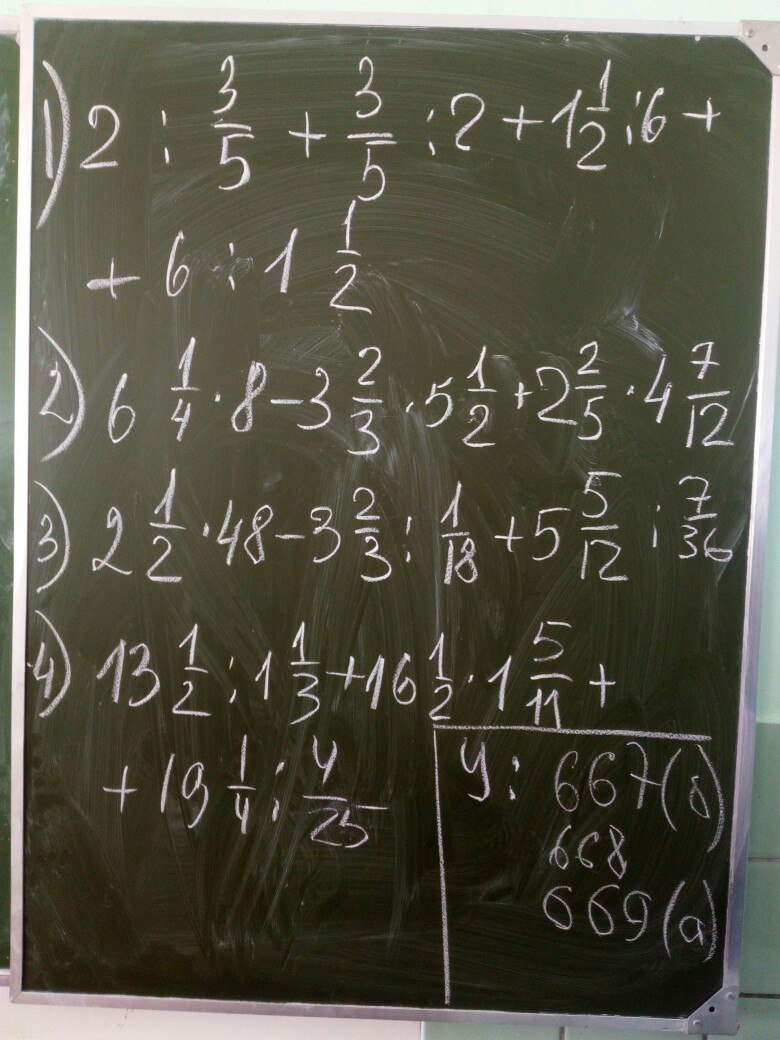 1) 2 : 3/5 + 3/5 : 2 + 1 1/2 : 6 +
+ 6 : 1 1/2
2) 6 1/4 · 8 - 3 2/3 · 5 1/2 + 2 2/5 · 4 7/12
3) 2 1/2 · 48 - 3 2/3 : 1/18 + 5 5/12 : 7/36
4) 13 1/2 : 1 1/3 + 16 1/2 · 1 5/11 +
+ 19 1/4 : 4/25
У: 667(б)
668
669(а)